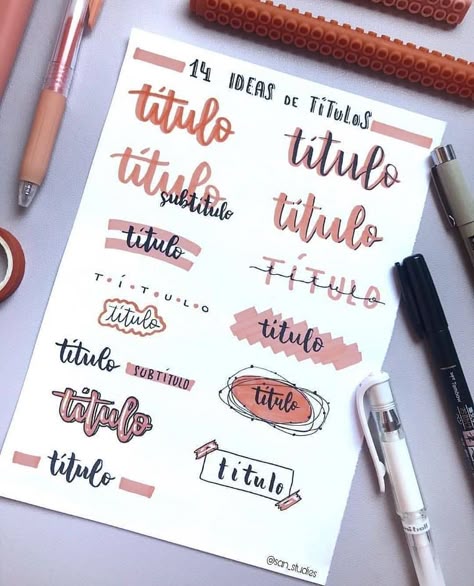 14 IDEAS DE TÍTULOS
título
título
título
subtítulo
título
título
TÍTULO
título
TÍTULO
título
título
título SUBTÍTULO
título
título
título
título
@san_studies